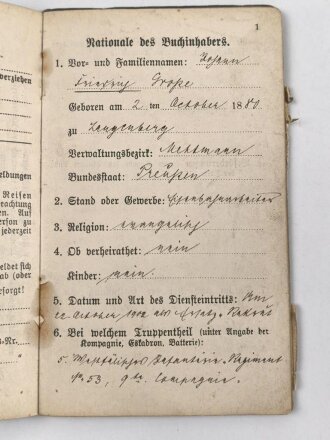 1
verziehen
Nationale des Buchinhabers.
1. Vor- und Familiennamen: Johann
Friedrich Große
Geboren am 2 ten October 1880
zu Langenberg
Verwaltungsbezirk: Mettmann
Bundesstaat: Preußen
2. Stand oder Gewerbe: Eisenbahnarbeiter
3. Religion: evangelisch
4. Ob verheirathet: nein
Kinder: nein
5. Datum und Art des Diensteintritts: Am
October als Ersatz-Rekrut
6. Bei welchem Truppentheil (unter Angabe der
Kompagnie, Eskadron, Batterie):
5. Westfälisches Infanterie-Regiment
No. 53, 9te Compagnie.
meldungen
Reisen
Auf
jederzeit
meldet sich
ab (oder
esorgt!
-Nr.